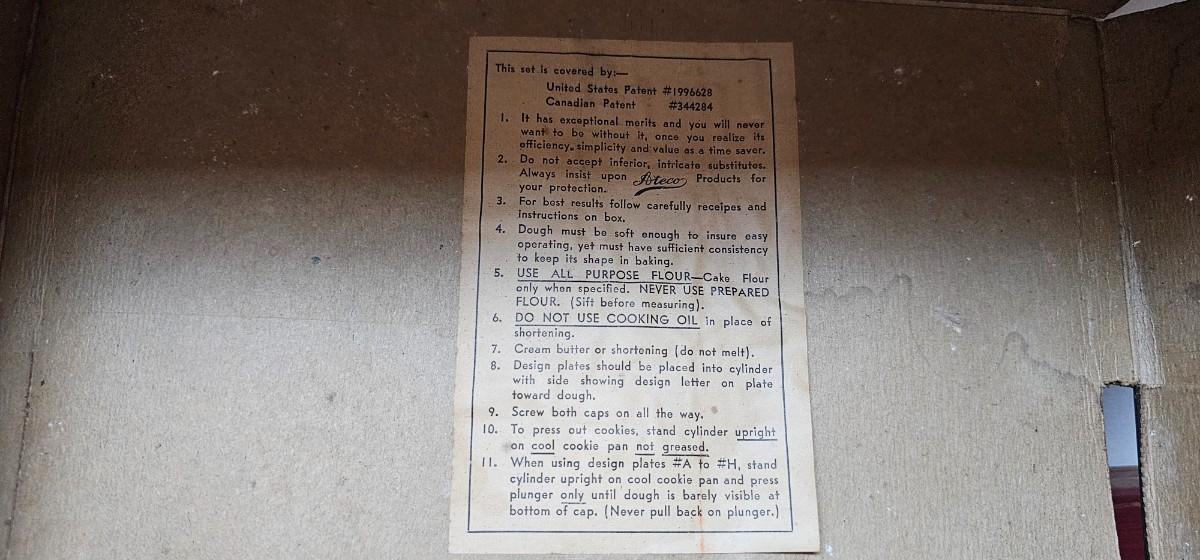 This set is covered by:—
United States Patent #1996628
Canadian Patent #344284
1. It has exceptional merits and you will never
want to be without it, once you realize its
efficiency, simplicity and value as a time saver.
2. Do not accept inferior, intricate substitutes.
Always insist upon Ateco Products for
your protection.
3. For best results follow carefully receipes and
instructions on box.
4. Dough must be soft enough to insure easy
operating, yet must have sufficient consistency
to keep its shape in baking.
5. USE ALL PURPOSE FLOUR—Cake Flour
only when specified. NEVER USE PREPARED
FLOUR. (Sift before measuring).
6. DO NOT USE COOKING OIL in place of
shortening.
7. Cream butter or shortening (do not melt).
8. Design plates should be placed into cylinder
with side showing design letter on plate
toward dough.
9. Screw both caps on all the way.
10. To press out cookies, stand cylinder upright
on cool cookie pan not greased.
11. When using design plates #A to #H, stand
cylinder upright on cool cookie pan and press
plunger only until dough is barely visible at
bottom of cap. (Never pull back on plunger.)